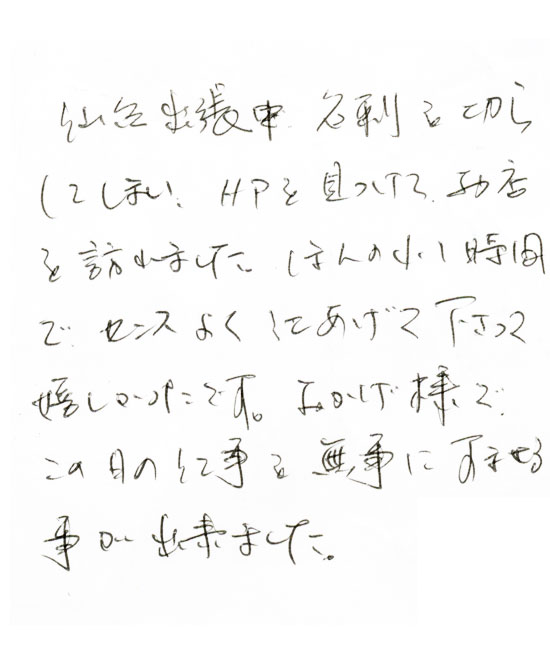 仙台出張中 名刺を切ら
してしまい、HPを見つけて お店
を訪れました。ほんの少しの時間
で センスよく仕上げて下さって
嬉しかったです。おかげ様で
この日の仕事を無事にすませる
事が出来ました。